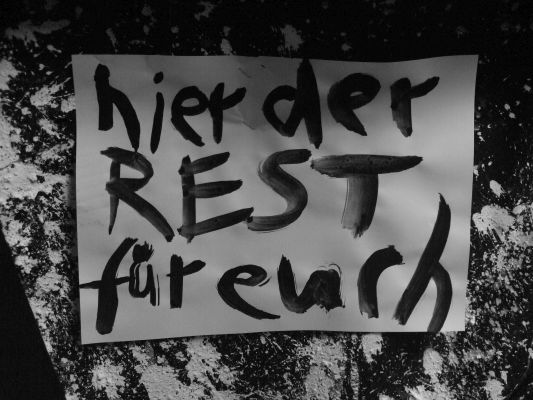 hier der
REST
für euch